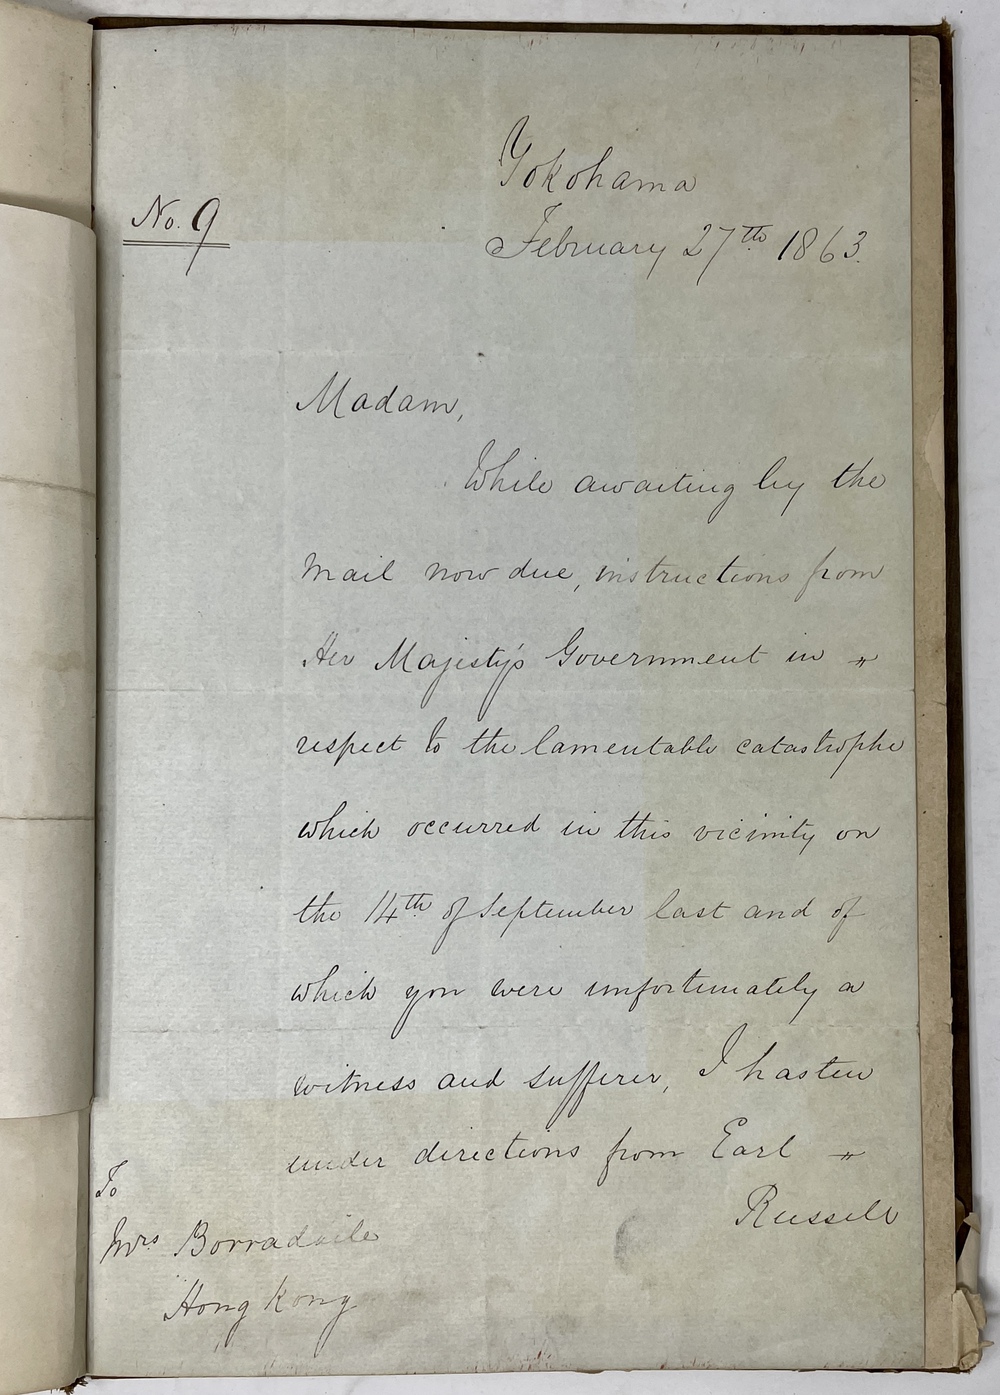 Yokohama
No. 9
February 27th 1863.
Madam,
While awaiting by the
Mail now due, instructions from
Her Majesty's Government in "
respect to the lamentable catastrophe
which occurred in this vicinity on
the 14th of September last and of
which you were unfortunately a
witness and sufferer, I hasten
under directions from Earl "
Russell
To
Mrs Borradaile
Hong Kong